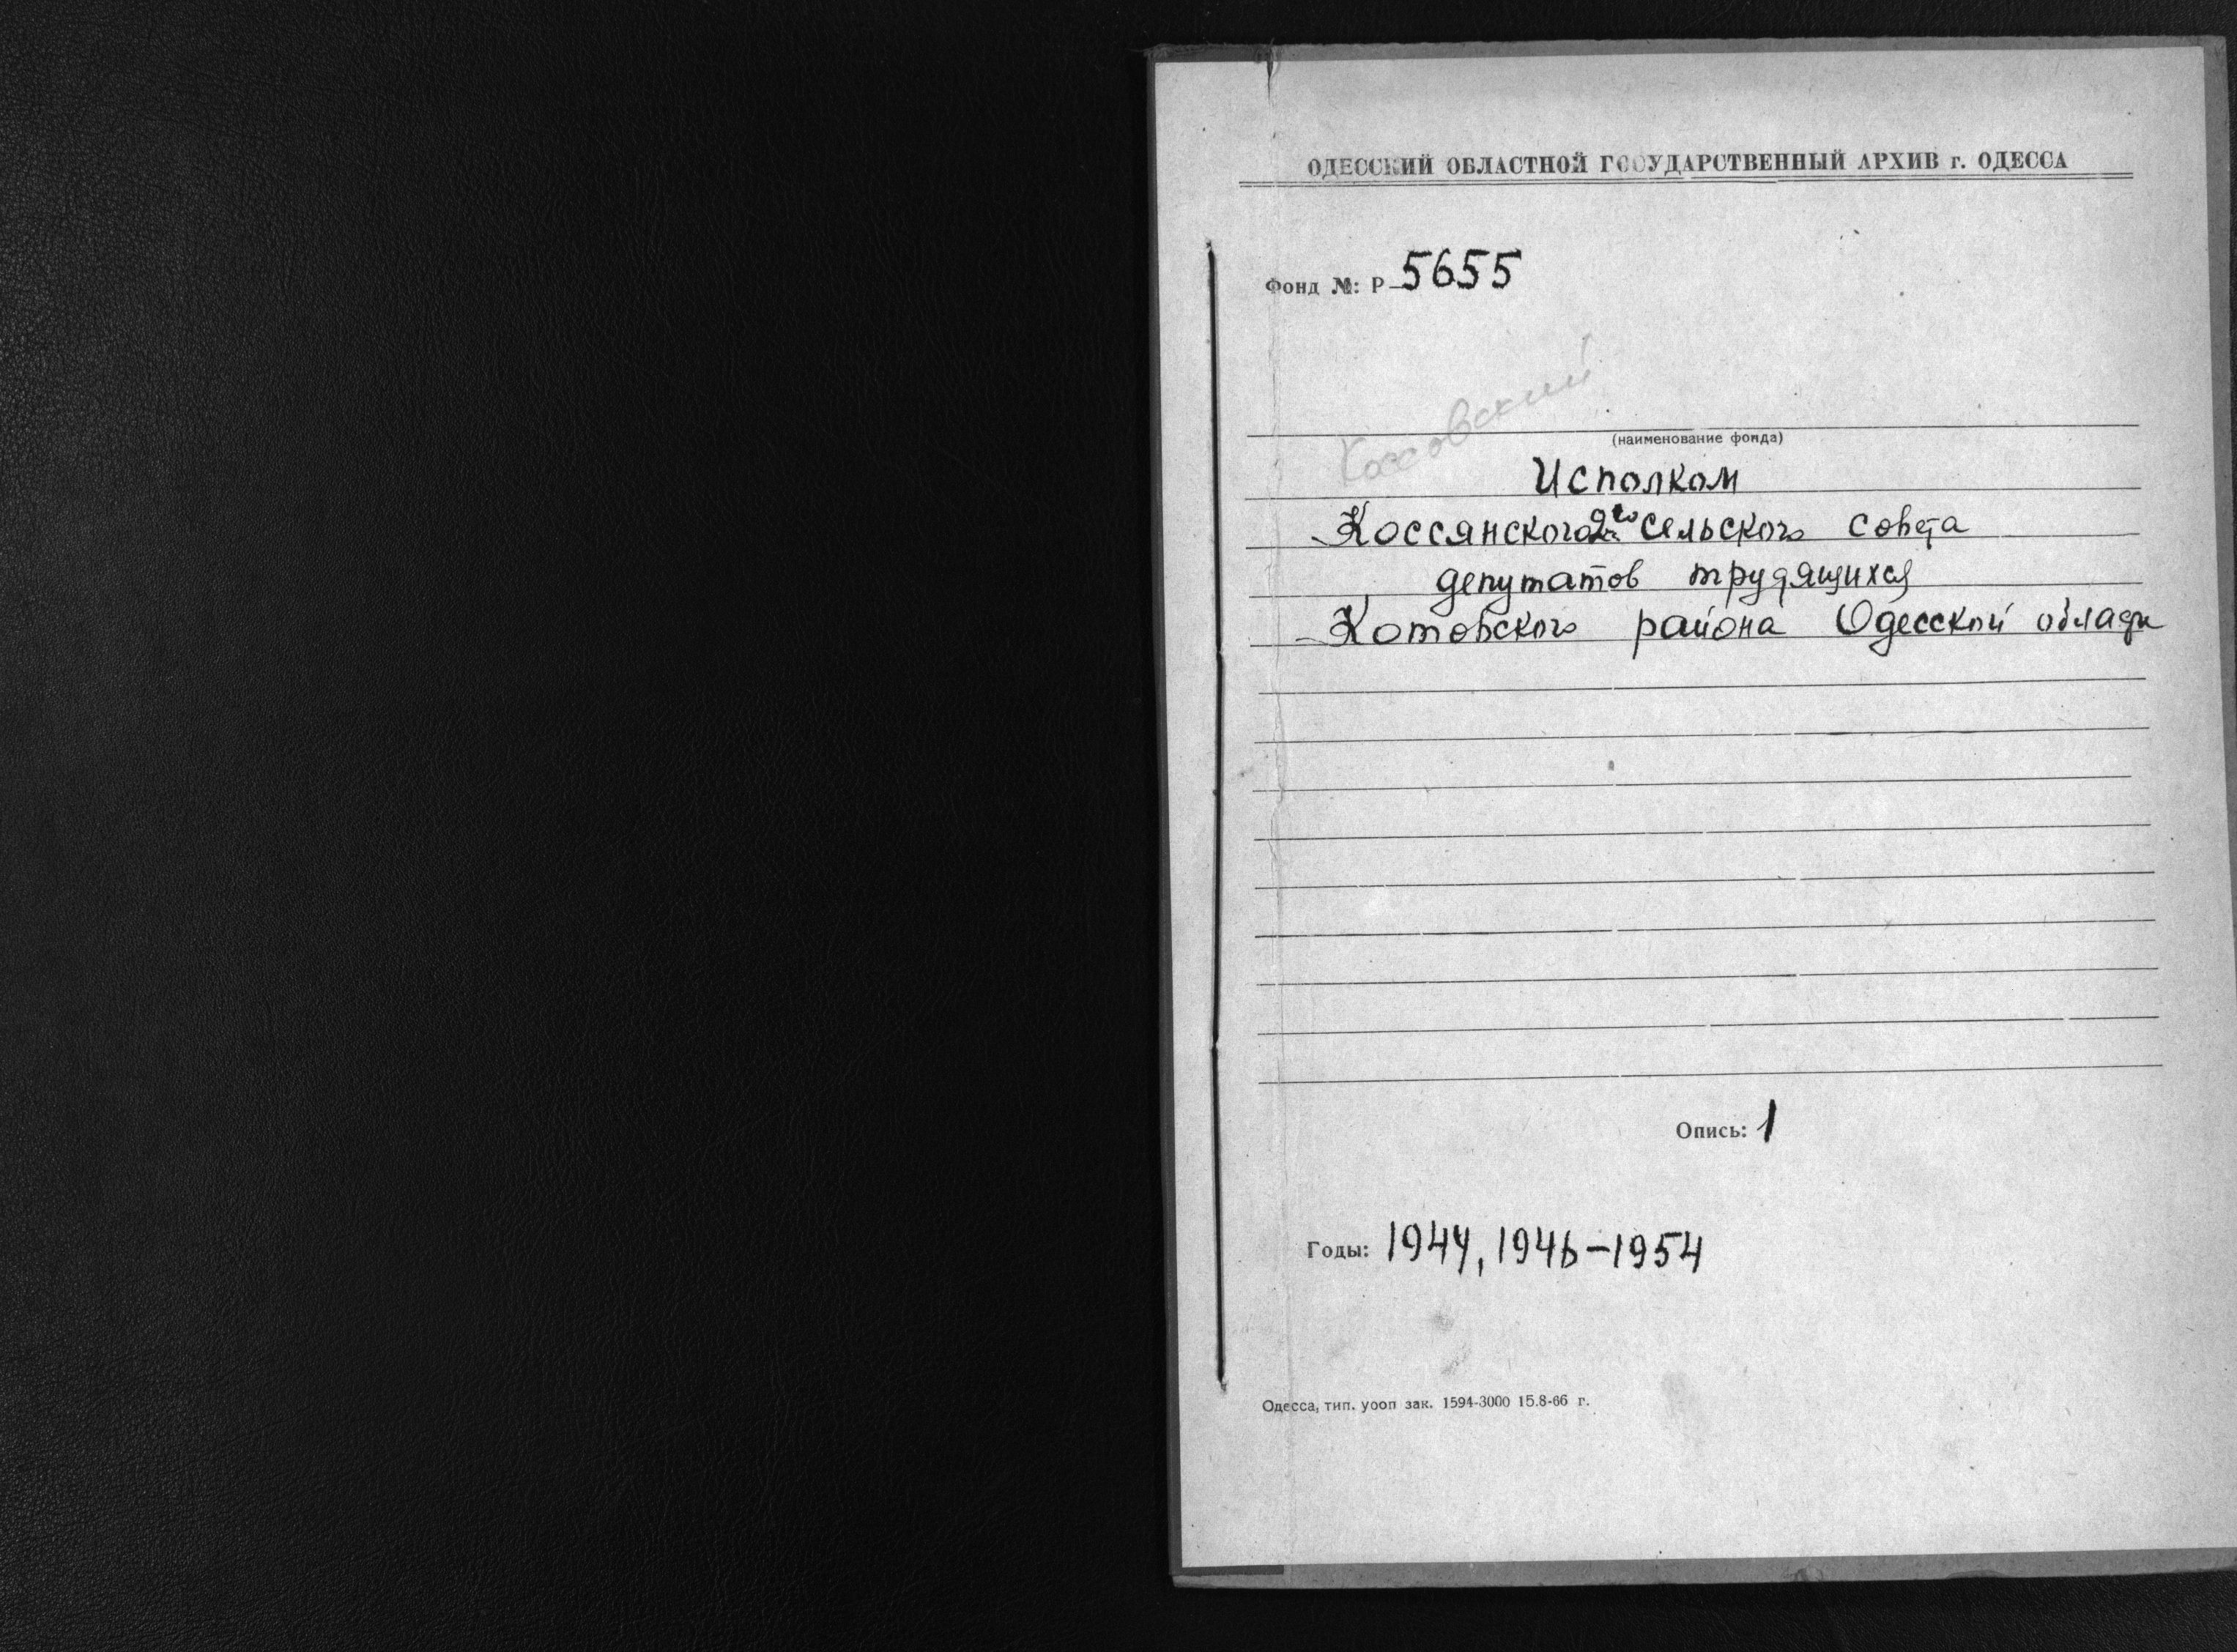 ОДЕССКИЙ ОБЛАСТНОЙ ГОСУДАРСТВЕННЫЙ АРХИВ г. ОДЕССА
Фонд №: Р-5655
Коссовский
(наименование фонда)
Исполком
Коссянского 2го сельского совета
депутатов трудящихся
Котовского района Одесской области
Опись: 1
Годы: 1944, 1946-1954
Одесса, тип. уооп зак. 1594-3000 15.8-66 г.